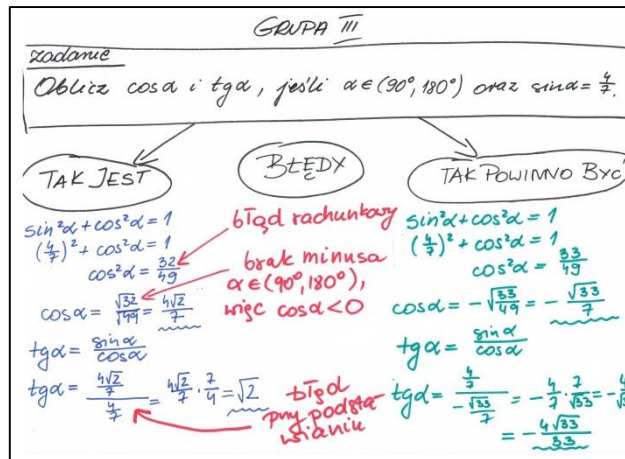 GRUPA III
zadanie
Oblicz cosα i tgα, jeśli α∈(90°,180°) oraz sinα=4/7.
TAK JEST
BŁĘDY
TAK POWINNO BYĆ
sin²α+cos²α=1
(4/7)²+cos²α=1
cos²α=32/49
cosα=√32/√49=4√2/7
tgα=sinα/cosα
tgα=(4√2/7)/(4/7)=4√2/7·7/4=√2
błąd rachunkowy
brak minusa
α∈(90°,180°),
więc cosα<0
błąd
przy podsta-
wianiu
sin²α+cos²α=1
(4/7)²+cos²α=1
cos²α=33/49
cosα=-√(33/49)=-√33/7
tgα=sinα/cosα
tgα=(4/7)/(-√33/7)=-4/7·7/√33=-
=-4√33/33